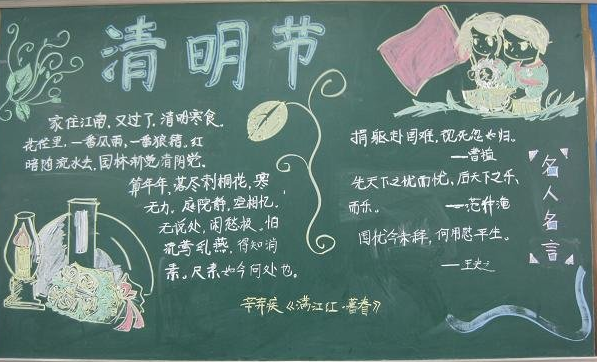 清明节
家住江南,又过了,清明寒食。
花径里,一番风雨,一番狼籍。红
暗随流水去,园林渐觉清阴
算年年,尽刺桐花,寒
无力。庭院静,空相忆。
无说处,闲愁极。怕
流莺乳燕,得知消
素。尺素如今何处也。
辛弃疾《满江红·暮春》
捐躯赴国难,视死忽如归。
——曹植
先天下之忧而忧,后天下之乐,
而乐。 ——范仲淹
国忧今未释,何用慰平生。
名人名言